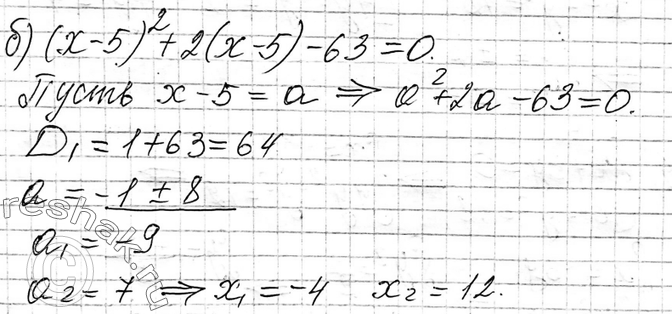 б) (x-5)² + 2(x-5) - 63 = 0.
Пусть x - 5 = a ⇒ a² + 2a - 63 = 0.
D₁ = 1 + 63 = 64
a = -1 ± 8
a₁ = -9
a₂ = 7 ⇒ x₁ = -4 x₂ = 12.
reshak.ru